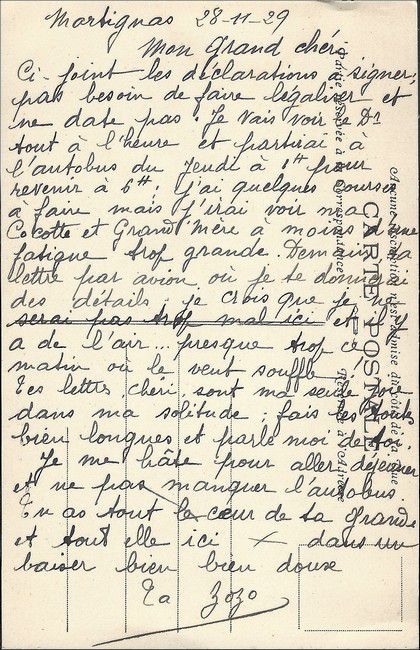 Martignas 28-11-29
Mon Grand chéri
Ci-joint les déclarations à signer,
pas besoin de faire légaliser et
ne date pas. Je vais voir le Dr
tout à l'heure et partirai à
l'autobus du Jeudi à 1H pour
revenir à 6H. j'ai quelques courses
à faire mais j'irai voir ma
Cocotte et Grand'Mère à moins d'une
fatigue trop grande. Demain la
lettre par avion où je te donnerai
des détails. je crois que je n
serai pas trop mal ici et il y
a de l'air... presque trop ce
matin où le vent souffle !
Tes lettres, chéri, sont ma seule joie
dans ma solitude : fais les moi
bien longues et parle moi de toi.
Je me hâte pour aller déjeuner
et ne pas manquer l'autobus.
Tu as tout le cœur de ta Grande
et tout elle ici × dans un
baiser bien bien doux
Ta Zozo
CARTE POSTALE
Partie réservée à la Correspondance